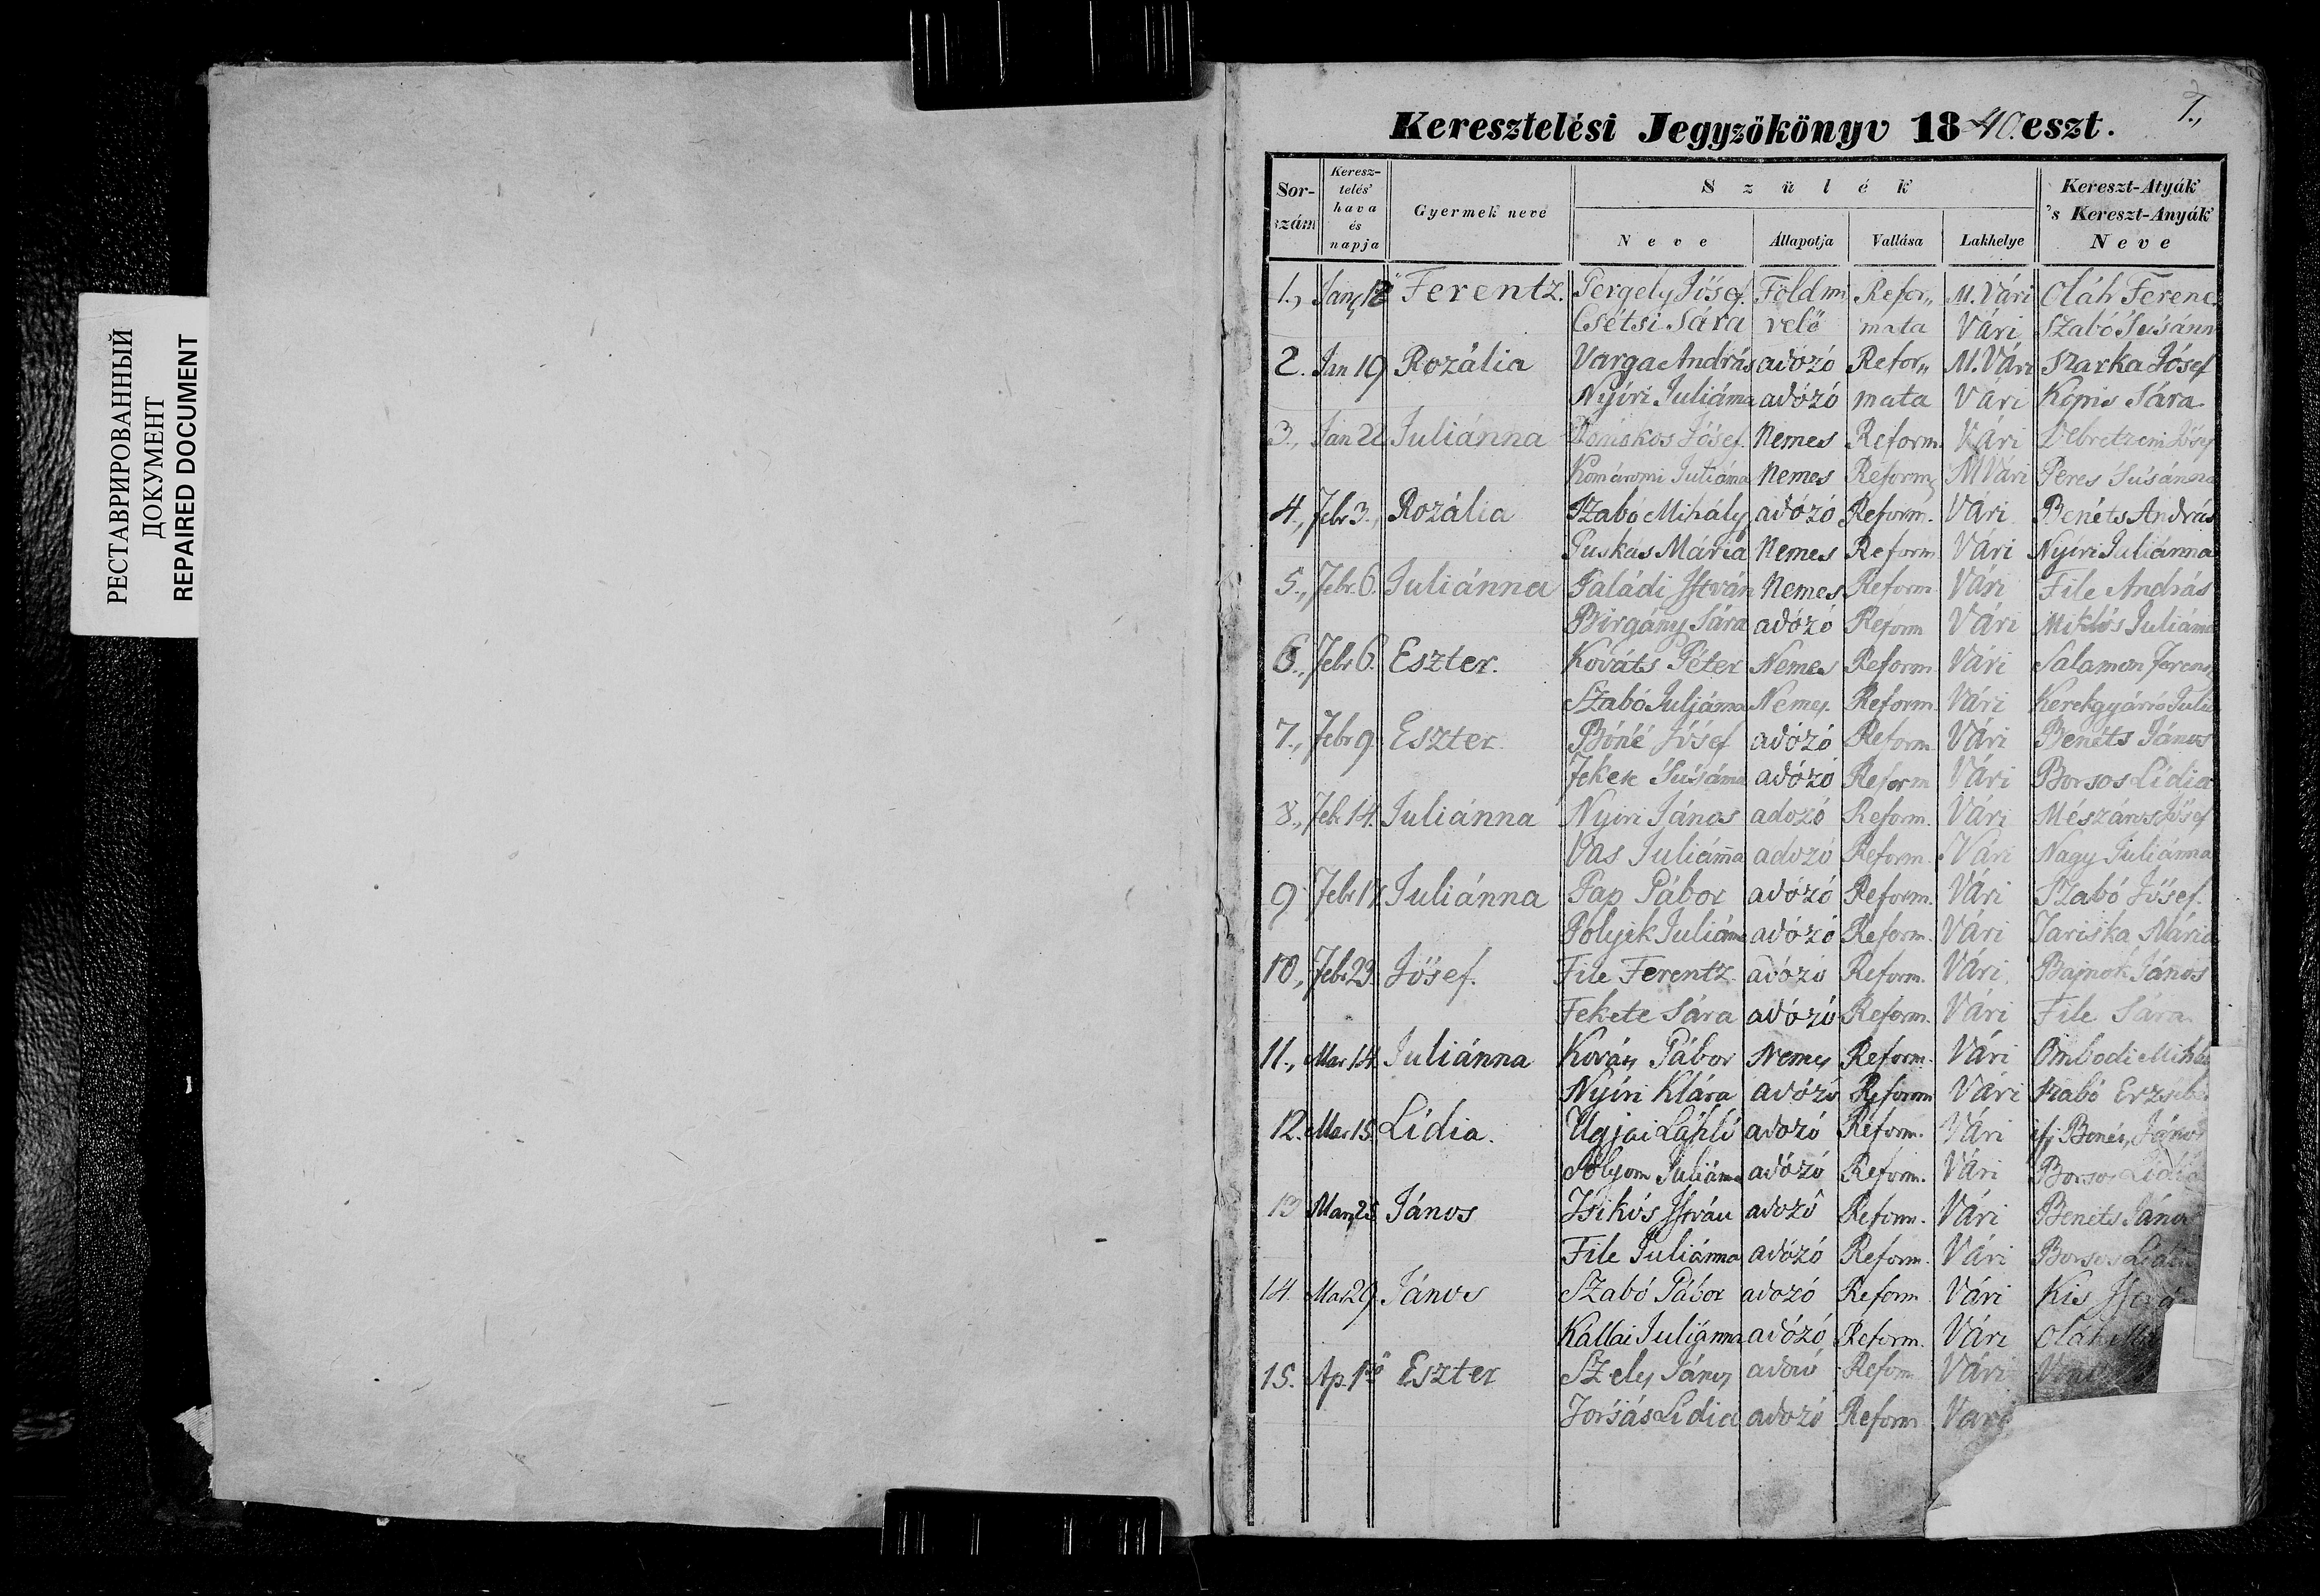 РЕСТАВРИРОВАННЫЙ
ДОКУМЕНТ
REPAIRED DOCUMENT
Keresztelési Jegyzőkönyv 1840. eszt.
Sor-szám Keresz-telés' hava és napja Gyermek neve Szülék Kereszt-Atyák 's Kereszt-Anyák Neve
Neve Állapotja Vallása Lakhelye
1., Ferentz. Gergely Jósef. Földmi Refor,, M. Vári Oláh Ferenc
Csétsi Sára velő mata Vári Szabó Susánn
2. Jan 19 Rozália Varga András adózó Refor,, M. Vári Szarka Jósef
Nyíri Juliánna adózó mata Vári Kópis Sára
3., Jan 22 Juliánna Jósef. Nemes Reform. Vári Debretzeni Jósef
Komáromi Juliánna Nemes Reform, M Vári Peres Susánna
4., Febr 3., Rozália Szabó Mihály adózó Reform. Vári Benéts András
Puskás Mária Nemes Reform Vári Nyíri Juliánna
5., Febr. 6. Juliánna István Nemes Reform Vári File András
Birgány Sára adózó Reform Vári Miklós Juliánna
6., Febr 6. Eszter. Kováts Péter Nemes Reform. Vári Salamon Ferenc
Szabó Juliánna Nemes. Reform. Vári Kerekgyártó Juli
7., Febr 9 Eszter. Bóné Jósef adózó Reform Vári Benéts János
Susánna adózó Reform Vári Borsos Lídia
8., Feb. 14. Juliánna Nyíri János adozó Reform. Vári Mészáros Jósef
Vas Juliánna adozó Reform. Vári Nagy Juliánna
9 Febr 17. Juliánna Pap Gábor adózó Reform. Vári Szabó Jósef.
Juliánna adózó Reform. Vári Tariska Mária
10., Feb. 23. Jósef. File Ferentz adózó Reform. Vári Bajnok János
Fekete Sára adózó Reform. Vári File Sára
11., Mar 14. Juliánna Kovács Gábor Nemes Reform. Vári Ombodi Mihá
Nyíri Klára adózó Reform Vári Szabó Erzsébe
12. Mar 15. Lídia. Ugjai adózó Reform. Vári ifj Benéts János
Sólyom Juliánna adózó Reform. Vári Borsos Lídia
13 Mar 25 János Tsikós István adozó Reform. Vári Benéts János
File Juliánna adózó Reform. Vári Borsos Lídi
14. Mar 29. János Szabó Gábor adozó Reform Vári Kis Istvá
Kállai Juliánna adózó Reform. Vári Oláh
15. Ap. Eszter Szeles János adózó Reform Vári
Lídia adozó Reform Vári